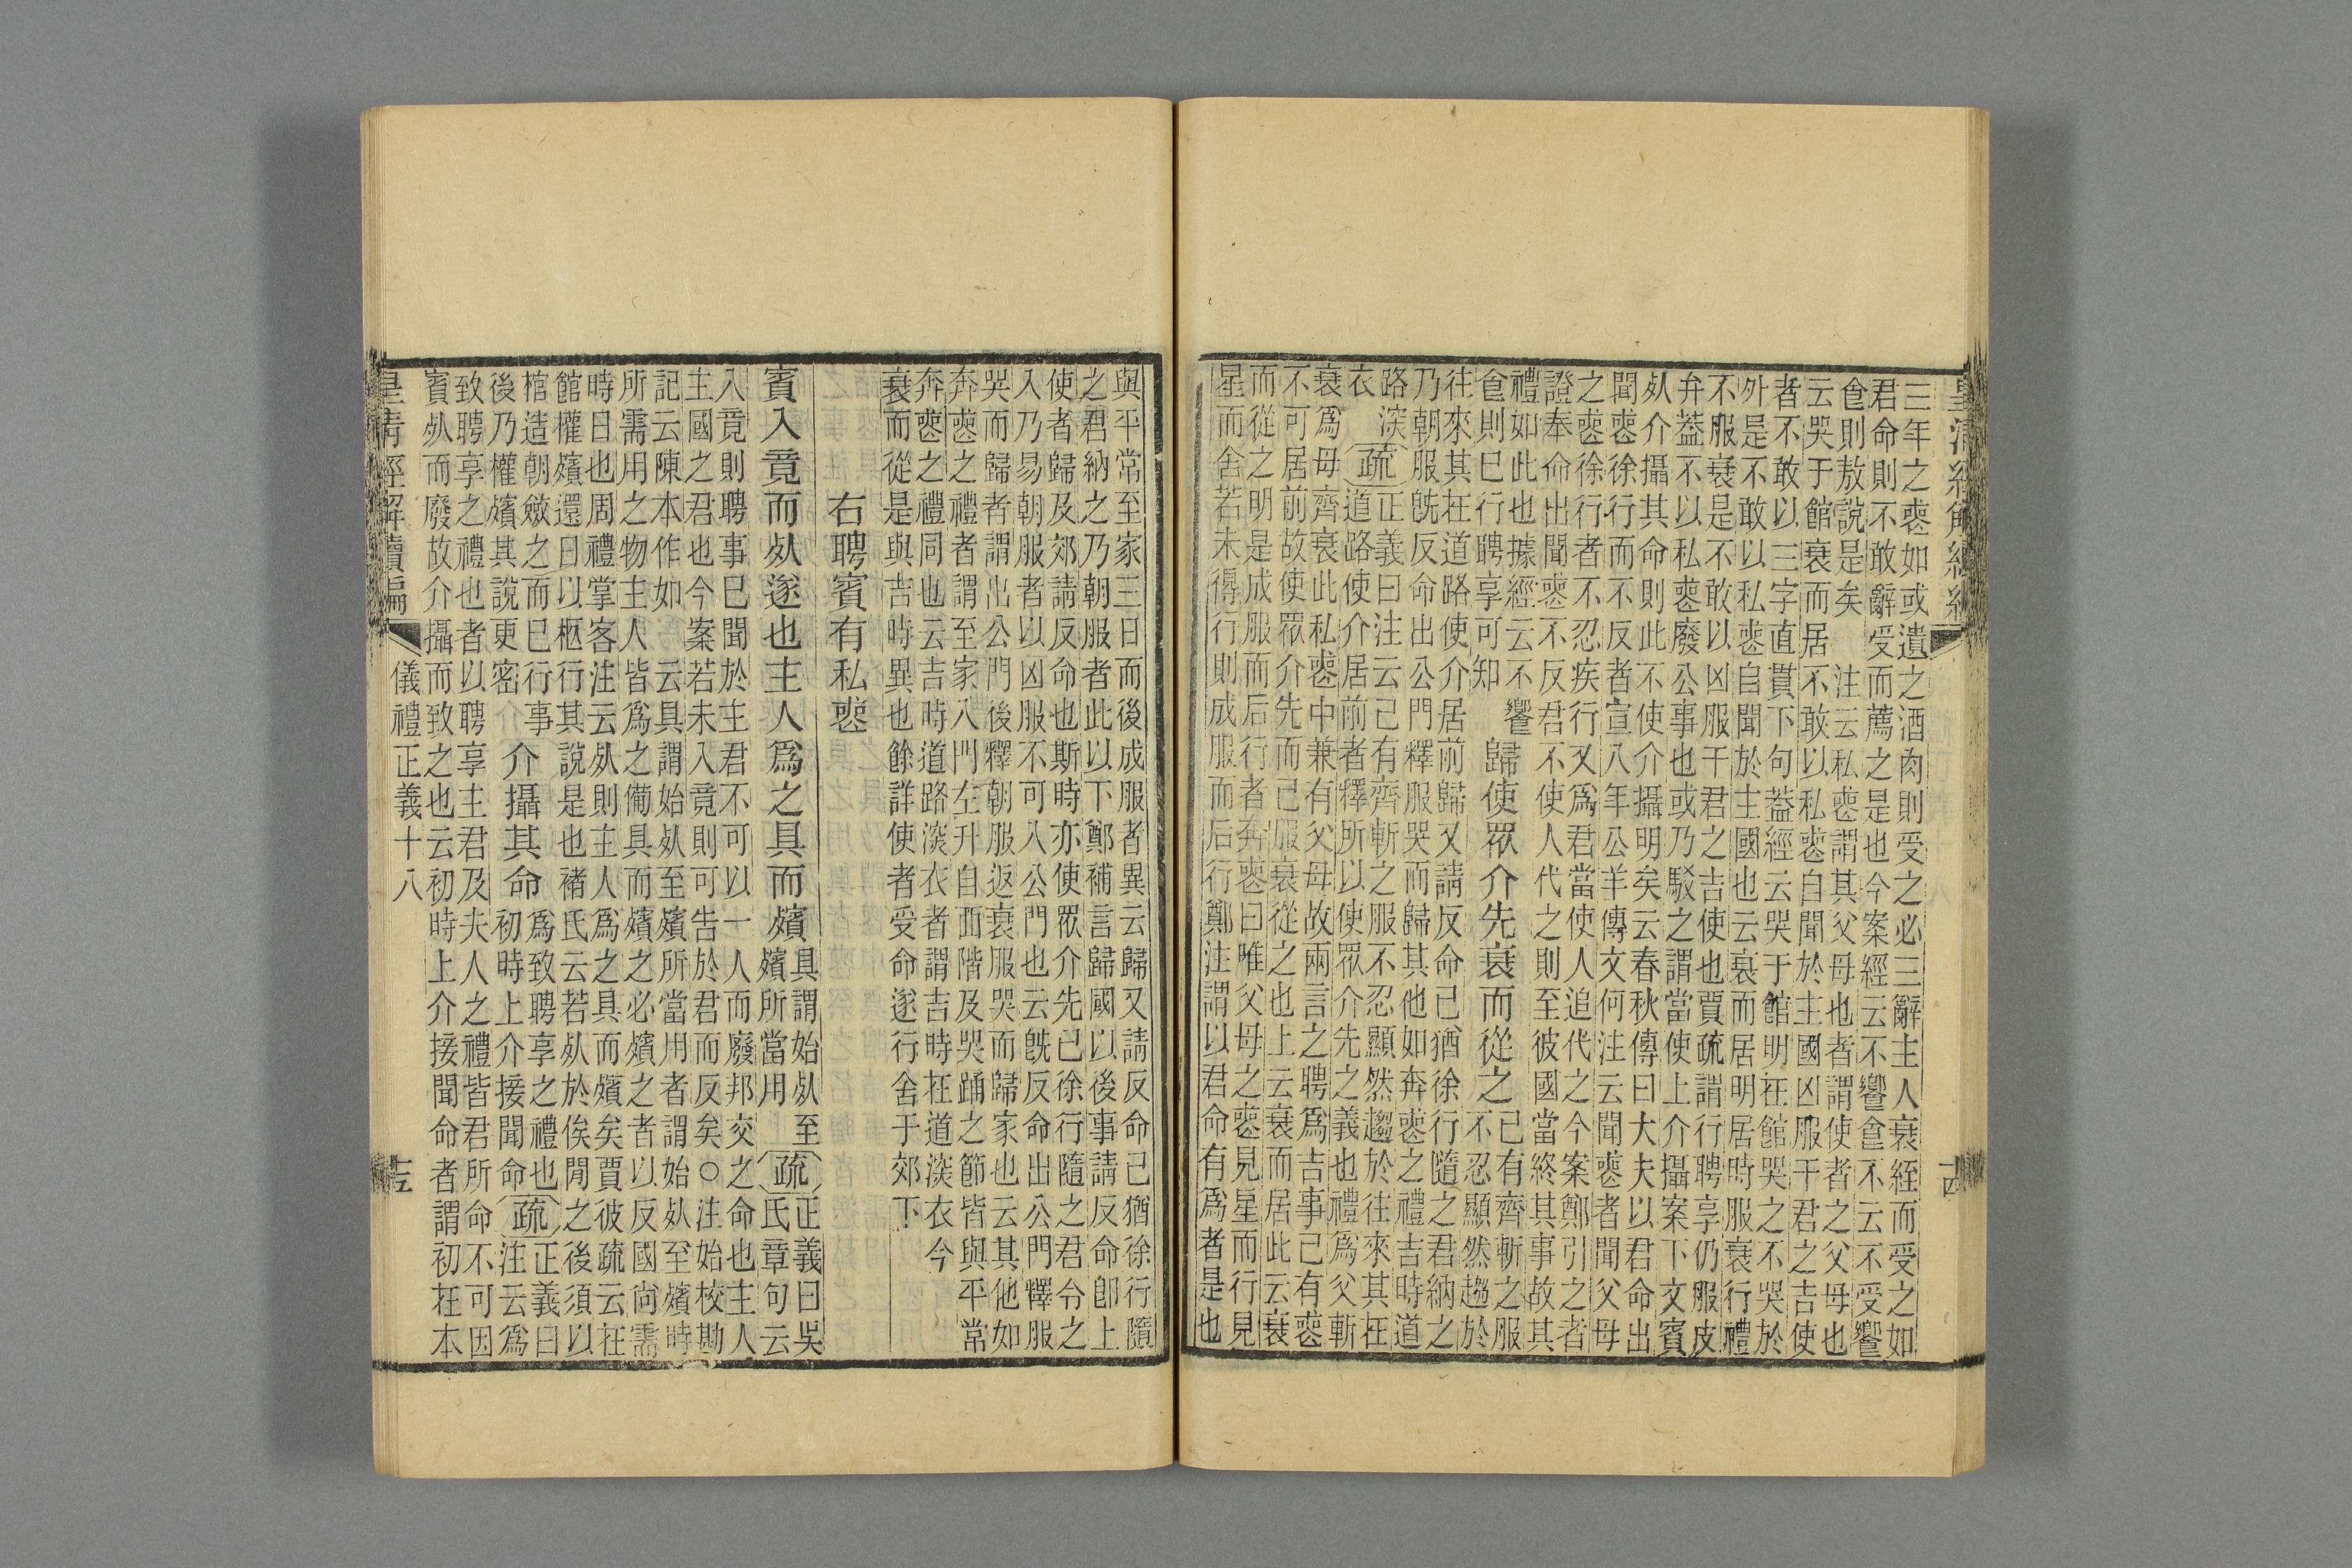 三年之喪如或遺之酒肉則受之必三辭主人衰絰而受之如
君命則不敢辭受而薦之是也今案經云不饗食不云不受饗
食則敖說是矣　注云私喪謂其父母也者謂使者之父母也
云哭于館衰而居不敢以私喪自聞於主國凶服干君之吉使
者不敢以三字直貫下句葢經云哭于館明在館哭之不哭於
外是不敢以私喪自聞於主國也云衰而居明居時服衰行禮
不服衰是不敢以凶服干君之吉使也賈疏謂行聘享仍服皮
弁葢不以私喪廢公事也或乃駁之謂當使上介攝案下文賓
死介攝其命則此不使介攝明矣云春秋傳曰大夫以君命出
聞喪徐行而不反者宣八年公羊傳文何注云聞喪者聞父母
之喪徐行者不忍疾行又爲君當使人追代之今案鄭引之者
證奉命出聞喪不反君不使人代之則至彼國當終其事故其
禮如此也據經云不饗
食則已行聘享可知
歸使眾介先衰而從之
已有齊斬之服
不忍顯然趨於
往來其在道路使介居前歸又請反命已猶徐行隨之君納之
乃朝服旣反命出公門釋服哭而歸其他如奔喪之禮吉時道
路深
衣
疏
正義曰注云已有齊斬之服不忍顯然趨於往來其在
道路使介居前者釋所以使眾介先之義也禮爲父斬
衰爲母齊衰此私喪中兼有父母故兩言之聘爲吉事已有喪
不可居前故使眾介先而已服衰從之也上云衰而居此云衰
而從之明是成服而后行者奔喪曰唯父母之喪見星而行見
星而舍若未得行則成服而后行鄭注謂以君命有爲者是也
與平常至家三日而後成服者異云歸又請反命已猶徐行隨
之君納之乃朝服者此以下鄭補言歸國以後事請反命卽上
使者歸及郊請反命也斯時亦使眾介先已徐行隨之君令之
入乃易朝服者以凶服不可入公門也云旣反命出公門釋服
哭而歸者謂出公門後釋朝服返衰服哭而歸家也云其他如
奔喪之禮者謂至家入門左升自西階及哭踊之節皆與平常
奔喪之禮同也云吉時道路深衣者謂吉時在道深衣今
衰而從是與吉時異也餘詳使者受命遂行舍于郊下
右聘賓有私喪
賓入竟而死遂也主人爲之具而殯
具謂始死至
殯所當用
疏
正義曰吳
氏章句云
入竟則聘事已聞於主君不可以一人而廢邦交之命也主人
主國之君也今案若未入竟則可告於君而反矣○注始校勘
記云陳本作如　云具謂始死至殯所當用者謂始死至殯時
所需用之物主人皆爲之備具而殯之必殯之者以反國尙需
時日也周禮掌客注云死則主人爲之具而殯矣賈彼疏云在
館權殯還日以柩行其說是也褚氏云若死於俟閒之後須以
棺造朝斂之而已行事
後乃權殯其說更密
介攝其命
爲致聘享之禮也
初時上介接聞命
疏
正義曰
注云爲
致聘享之禮也者以聘享主君及夫人之禮皆君所命不可因
賓死而廢故介攝而致之也云初時上介接聞命者謂初在本
皇清經解續編
儀禮正義十八